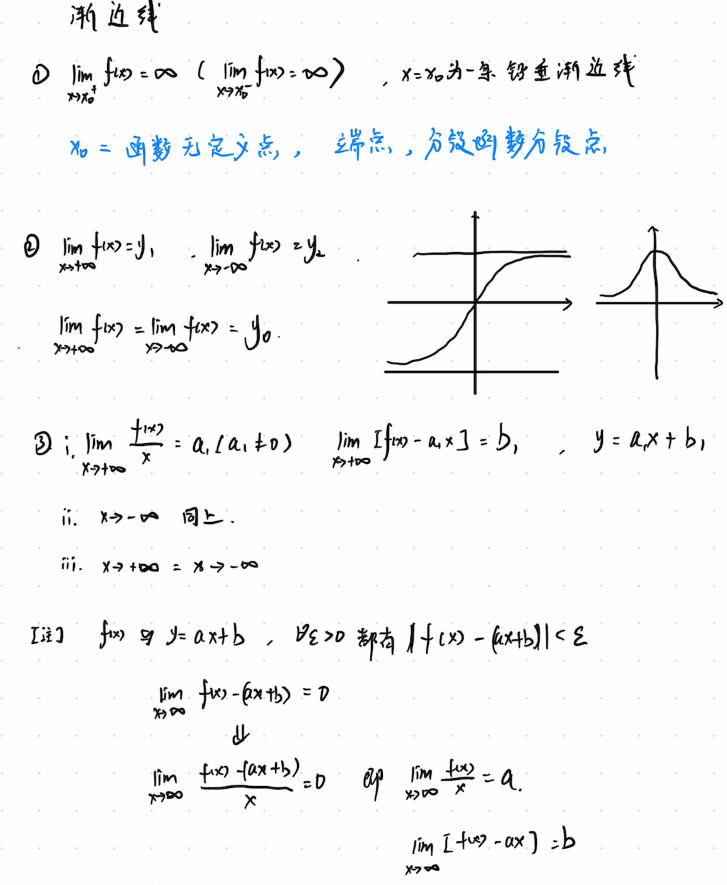 渐近线
① lim_{x→x₀⁺} f(x) = ∞ ( lim_{x→x₀⁻} f(x) = ∞ ) , x = x₀ 为一条铅垂渐近线
x₀ = 函数无定义点, 端点, 分段函数分段点
② lim_{x→+∞} f(x) = y₁ . lim_{x→-∞} f(x) = y₂ .
lim_{x→+∞} f(x) = lim_{x→-∞} f(x) = y₀.
③ i. lim_{x→+∞} f(x)/x = a₁ (a₁ ≠ 0) lim_{x→+∞} [f(x) - a₁x] = b₁ , y = a₁x + b₁
ii. x→-∞ 同上.
iii. x→+∞ = x→-∞
[注] f(x) 与 y = ax+b , ∀ε>0 都有 |f(x) - (ax+b)| < ε
lim_{x→∞} f(x) - (ax+b) = 0
⇓
lim_{x→∞} (f(x) - (ax+b))/x = 0 即 lim_{x→∞} f(x)/x = a.
lim_{x→∞} [f(x) - ax] = b